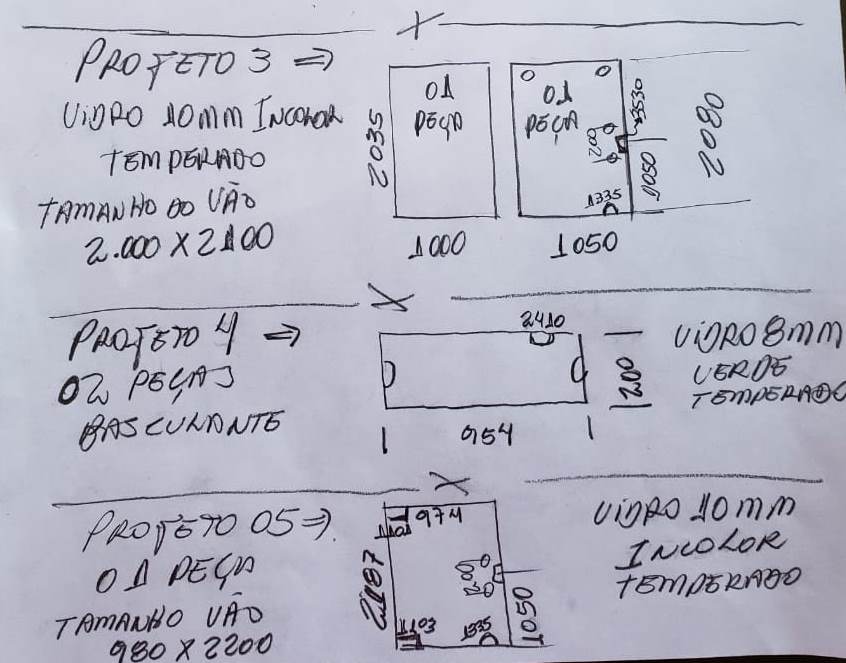 PROJETO 3 ⇒
VIDRO 10MM INCOLOR
TEMPERADO
TAMANHO DO VÃO
2.000 X 2100
2035
01
PEÇA
1000
01
PEÇA
200
1335
3530
1050
2080
1050
PROJETO 4 ⇒
02 PEÇAS
BASCULANTE
2410
200
954
VIDRO 8MM
VERDE
TEMPERADO
PROJETO 05 ⇒
01 PEÇA
TAMANHO VÃO
980 X 2200
974
1101
2187
200
1103
1335
1050
VIDRO 10MM
INCOLOR
TEMPERADO